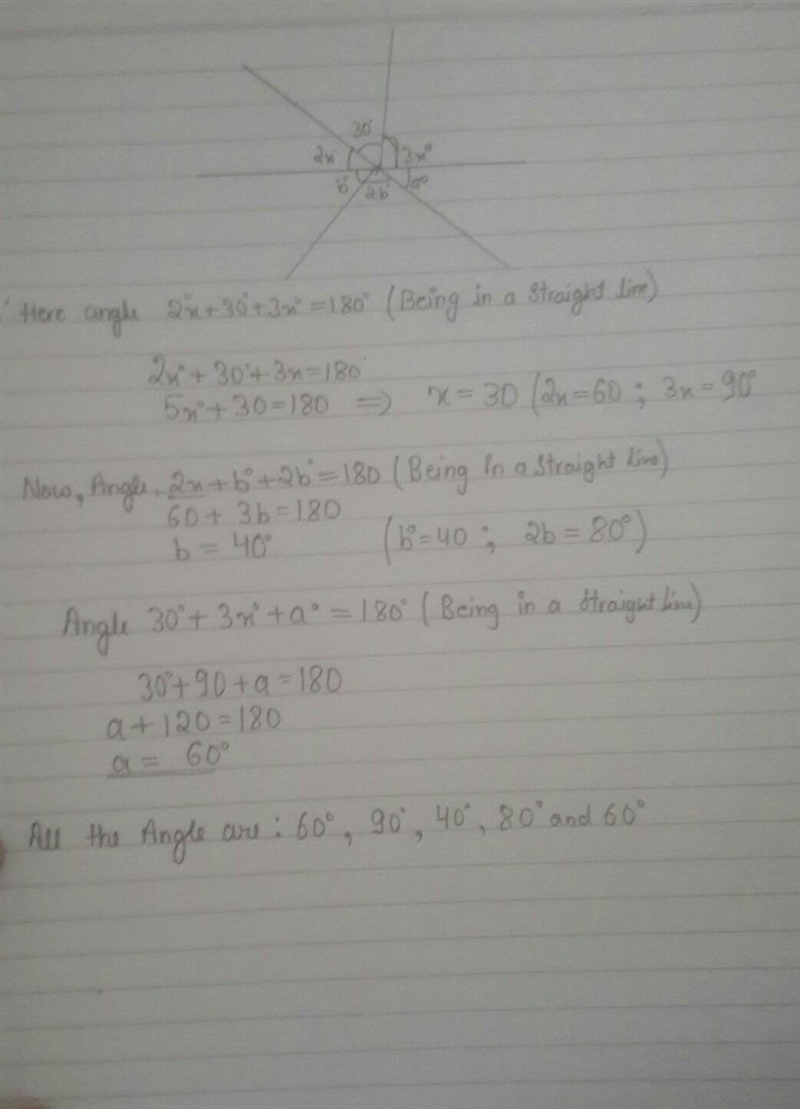 30°
2x° 3x°
b° 2b° a°
Here angle 2x°+30°+3x°=180° (Being in a straight line)
2x°+30°+3x=180°
5x°+30=180 ⇒ x=30 (2x=60 ; 3x=90°
Now, Angle, 2x+b°+2b°=180 (Being in a straight line)
60+3b=180
b=40° (b°=40 ; 2b=80°)
Angle 30°+3x°+a°=180° (Being in a straight line)
30°+90+a=180
a+120=180
a= 60°
All the Angle are: 60°, 90°, 40°, 80° and 60°